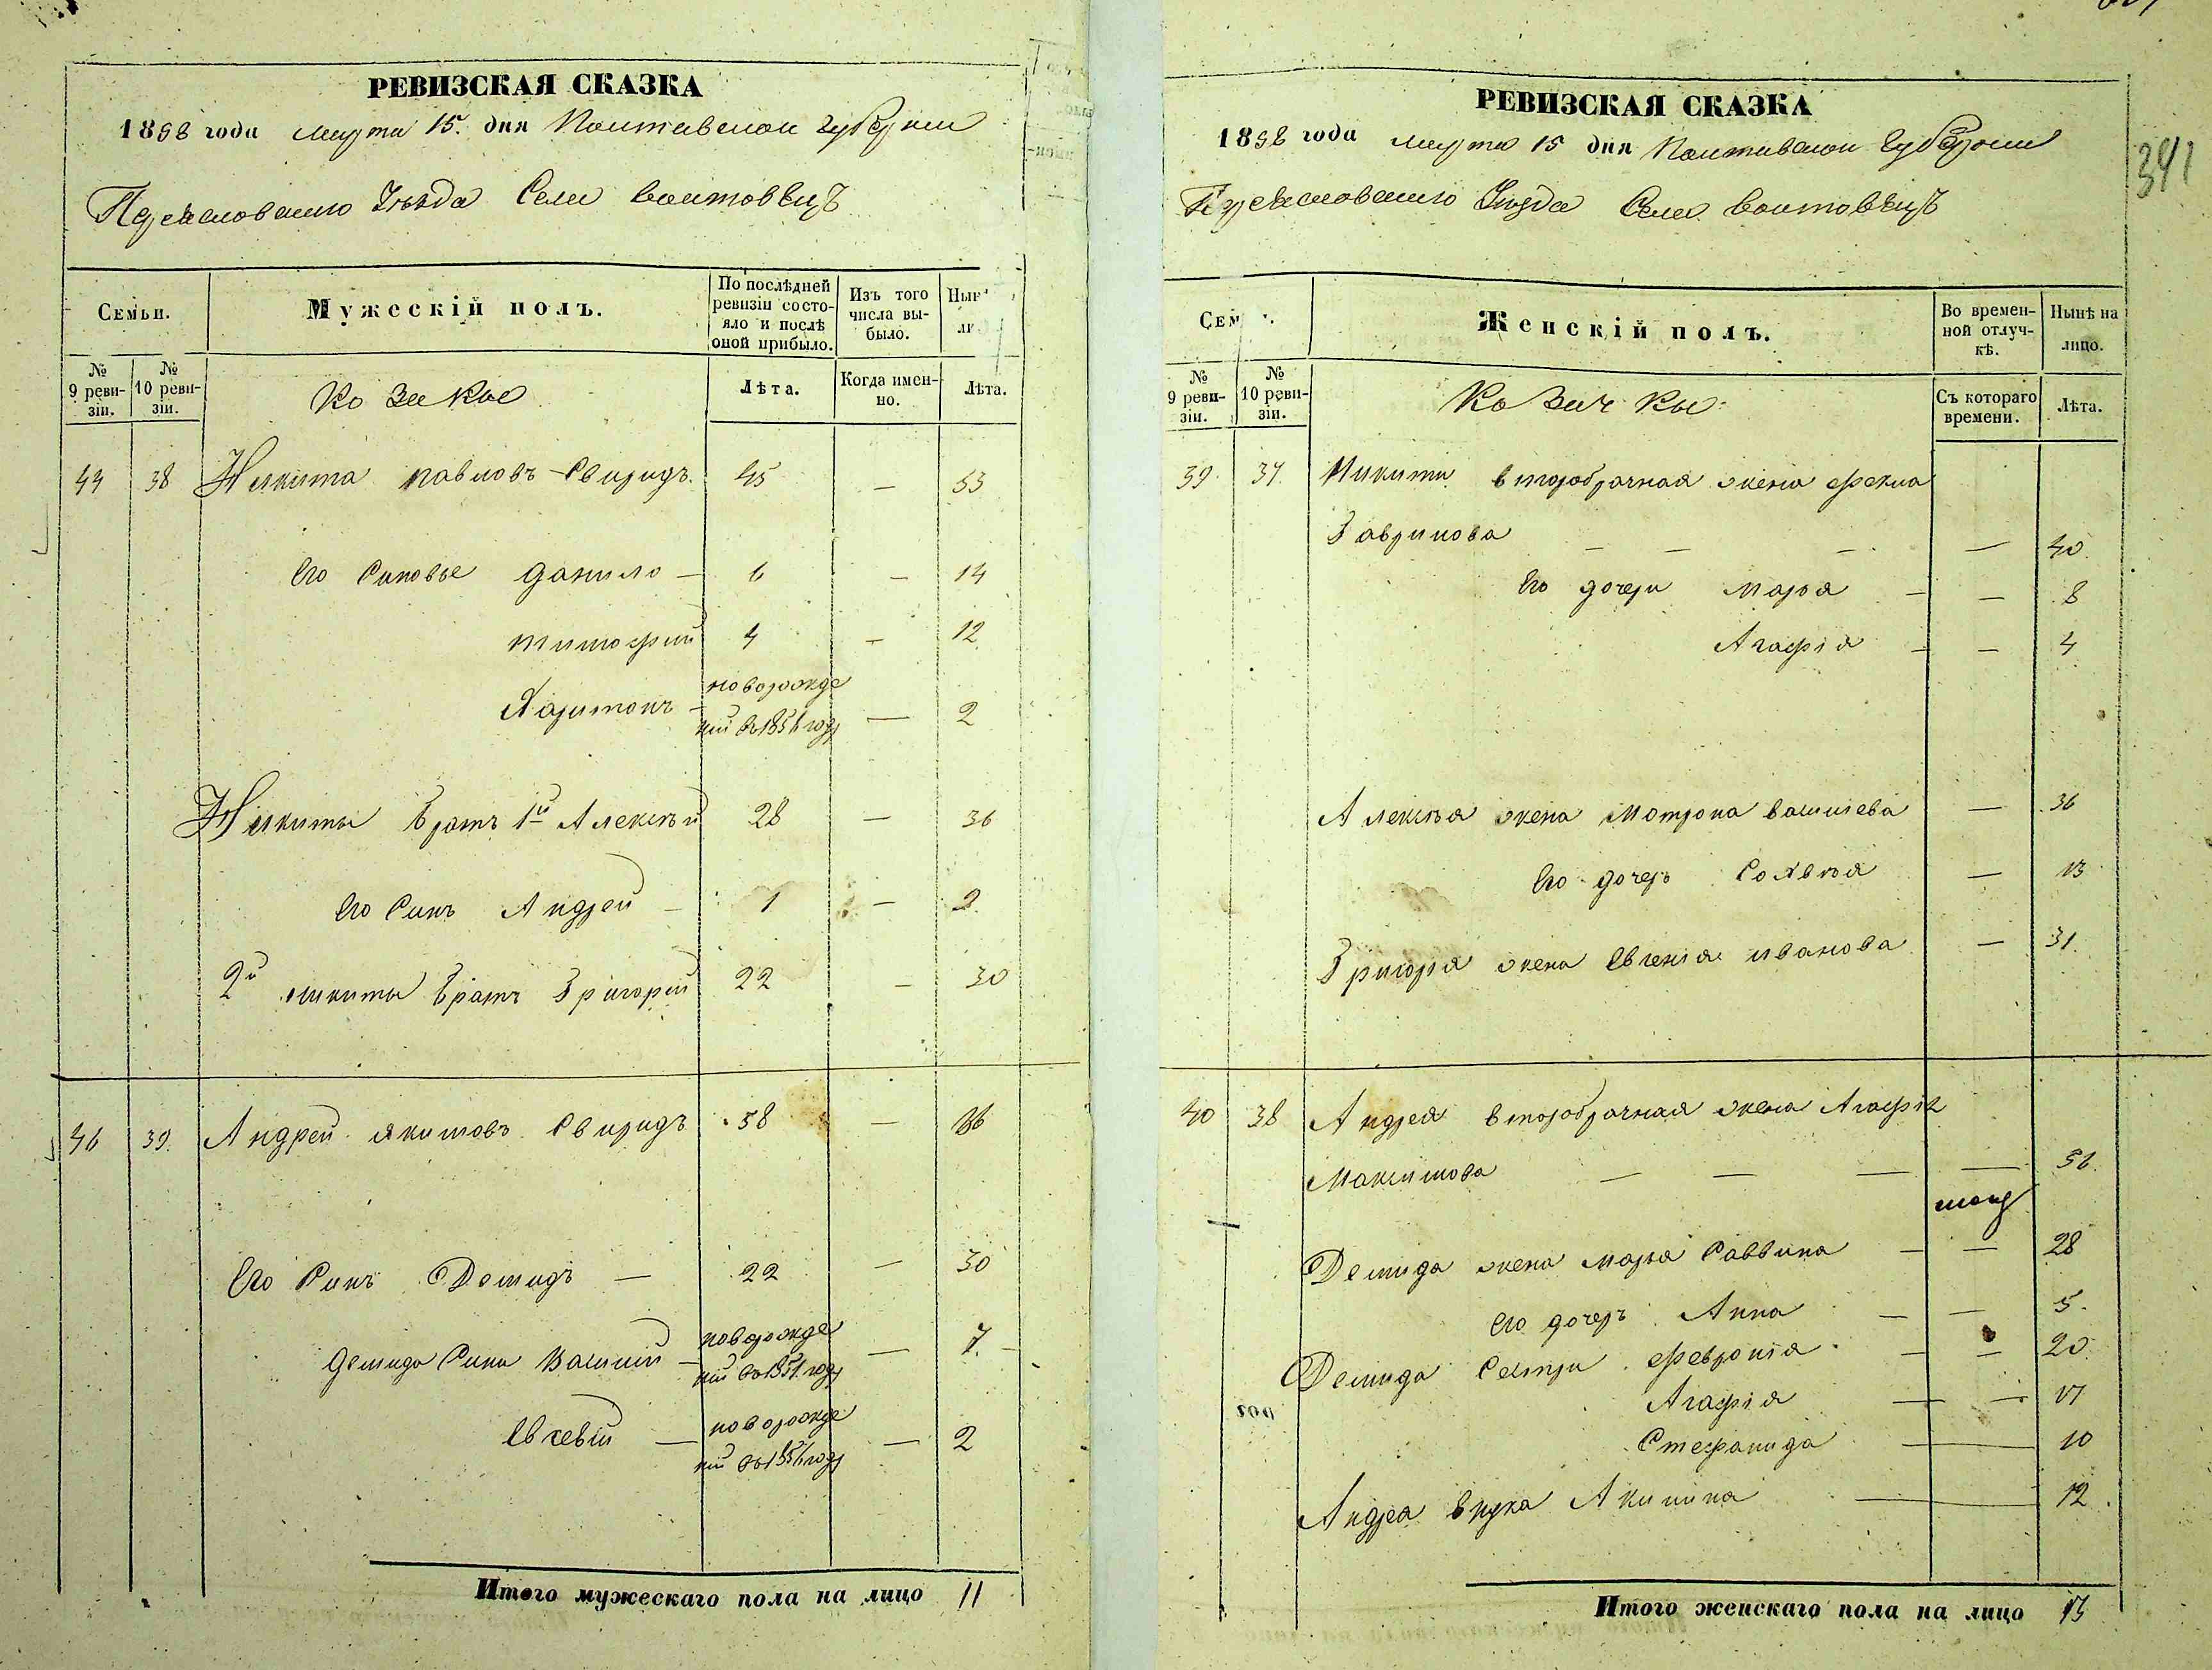 РЕВИЗСКАЯ СКАЗКА
1858 года марта 15. дня Полтавской губернии
Переяславского Уезда Села Воитовецъ
Семьи.
Мужескій полъ.
По послѣдней ревизіи состояло и послѣ оной прибыло.
Изъ того числа выбыло.
Нын
ли
№ 9 ревизіи.
№ 10 ревизіи.
Козаки
Лѣта.
Когда именно.
Лѣта.
44 38 Никита Павловъ Свиридъ. 45 — 53
Его Сыновье Данило — 6 — 14
Тимофий 4 — 12
Харитонъ — новорожде
ний въ 1856 году — 2
Никиты братъ 1й Алексѣй 28 — 36
Его Синъ Андрей — 1 — 9.
2й Никиты братъ Григорий 22 — 30
46 39. Андрей Якимовъ Свиридъ 58 — 66
Его Синъ Демидъ — 22 — 30
Демида Сини Василий — новорожде
ний въ 1851 году — 7. —
Евсевій — новорожде
ний въ 1856 году — 2
Итого мужескаго пола на лицо 11
РЕВИЗСКАЯ СКАЗКА
1858 года марта 15 дня Полтавской Губернии
Переяславского Уезда Села Воитовѣцъ
341
Сем
Женскій полъ.
Во временной отлучкѣ.
Нынѣ на лицо.
№ 9 ревизіи.
№ 10 ревизіи.
Козачки
Съ котораго времени.
Лѣта.
39. 37. Никити второбрачная жена Фекла
Гаврилова — — — — 40.
Его дочери Марья — — 8
Агафія — — 4
Алексѣя жена Мотрона Василева — 36
Его дочеръ Софія — 13
Григорія жена Евгенія Иванова — 31.
40 38 Андрея второбрачная жена Агафія
Максимова — — — — 56.
Демида жена Марья Саввина — — 28
Его дочеръ Анна — — 5.
Демида Сестри Февронія — — 20.
Агафія — — 17
Стефанида — 10
Андрея внука Акилина — 12.
Итого женскаго пола на лицо 13